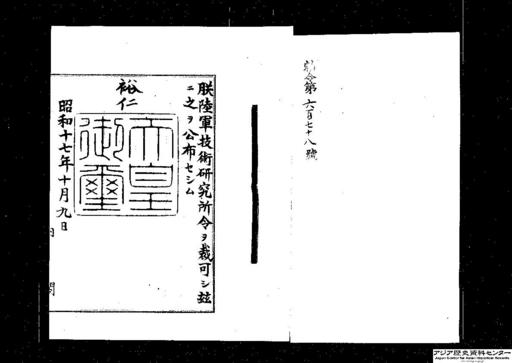 勅令第六百七十八號
朕陸軍技術研究所令ヲ裁可シ玆
ニ之ヲ公布セシム
裕仁
天皇
御璽
昭和十七年十月九日
内閣
アジア歴史資料センター
Japan Center for Asian Historical Records